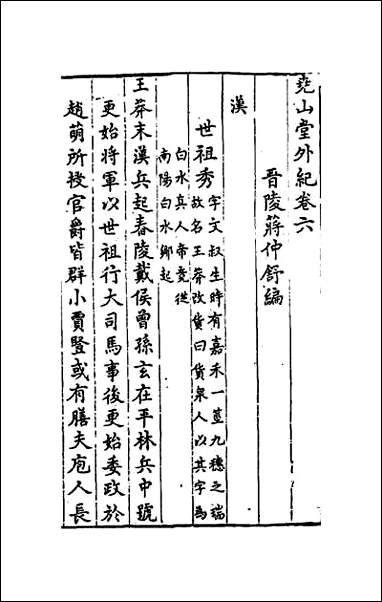 堯山堂外紀卷六
晉陵蔣仲舒編
漢
世祖秀字文叔生時有嘉禾一莖九穗之瑞
故名王莽改貨曰貨泉人以其字爲
白水真人帝竟從
南陽白水鄉起
王莽末漢兵起舂陵戴侯曾孫玄在平林兵中號
更始將軍以世祖行大司馬事後更始委政於
趙萌所授官爵皆群小賈豎或有膳夫庖人長